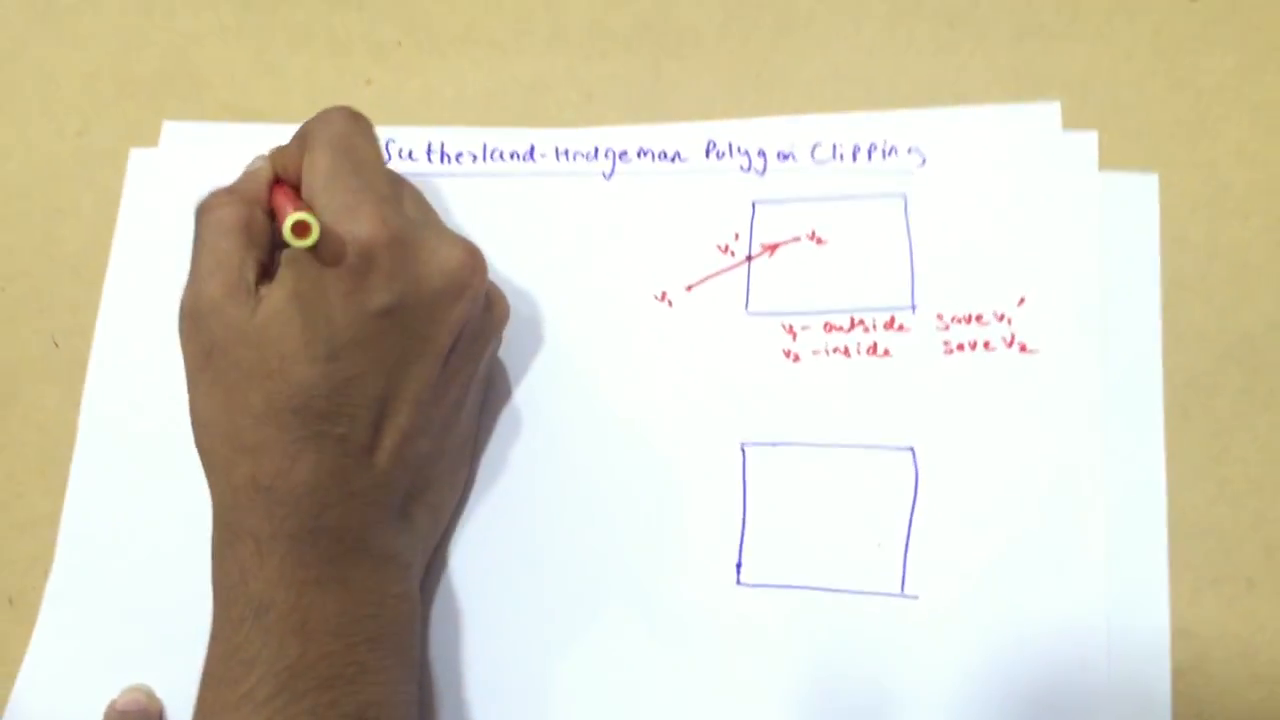 Sutherland-Hodgeman Polygon Clipping
v₁' v₂
v₁
v₁- outside save v₁'
v₂ -inside save V₂